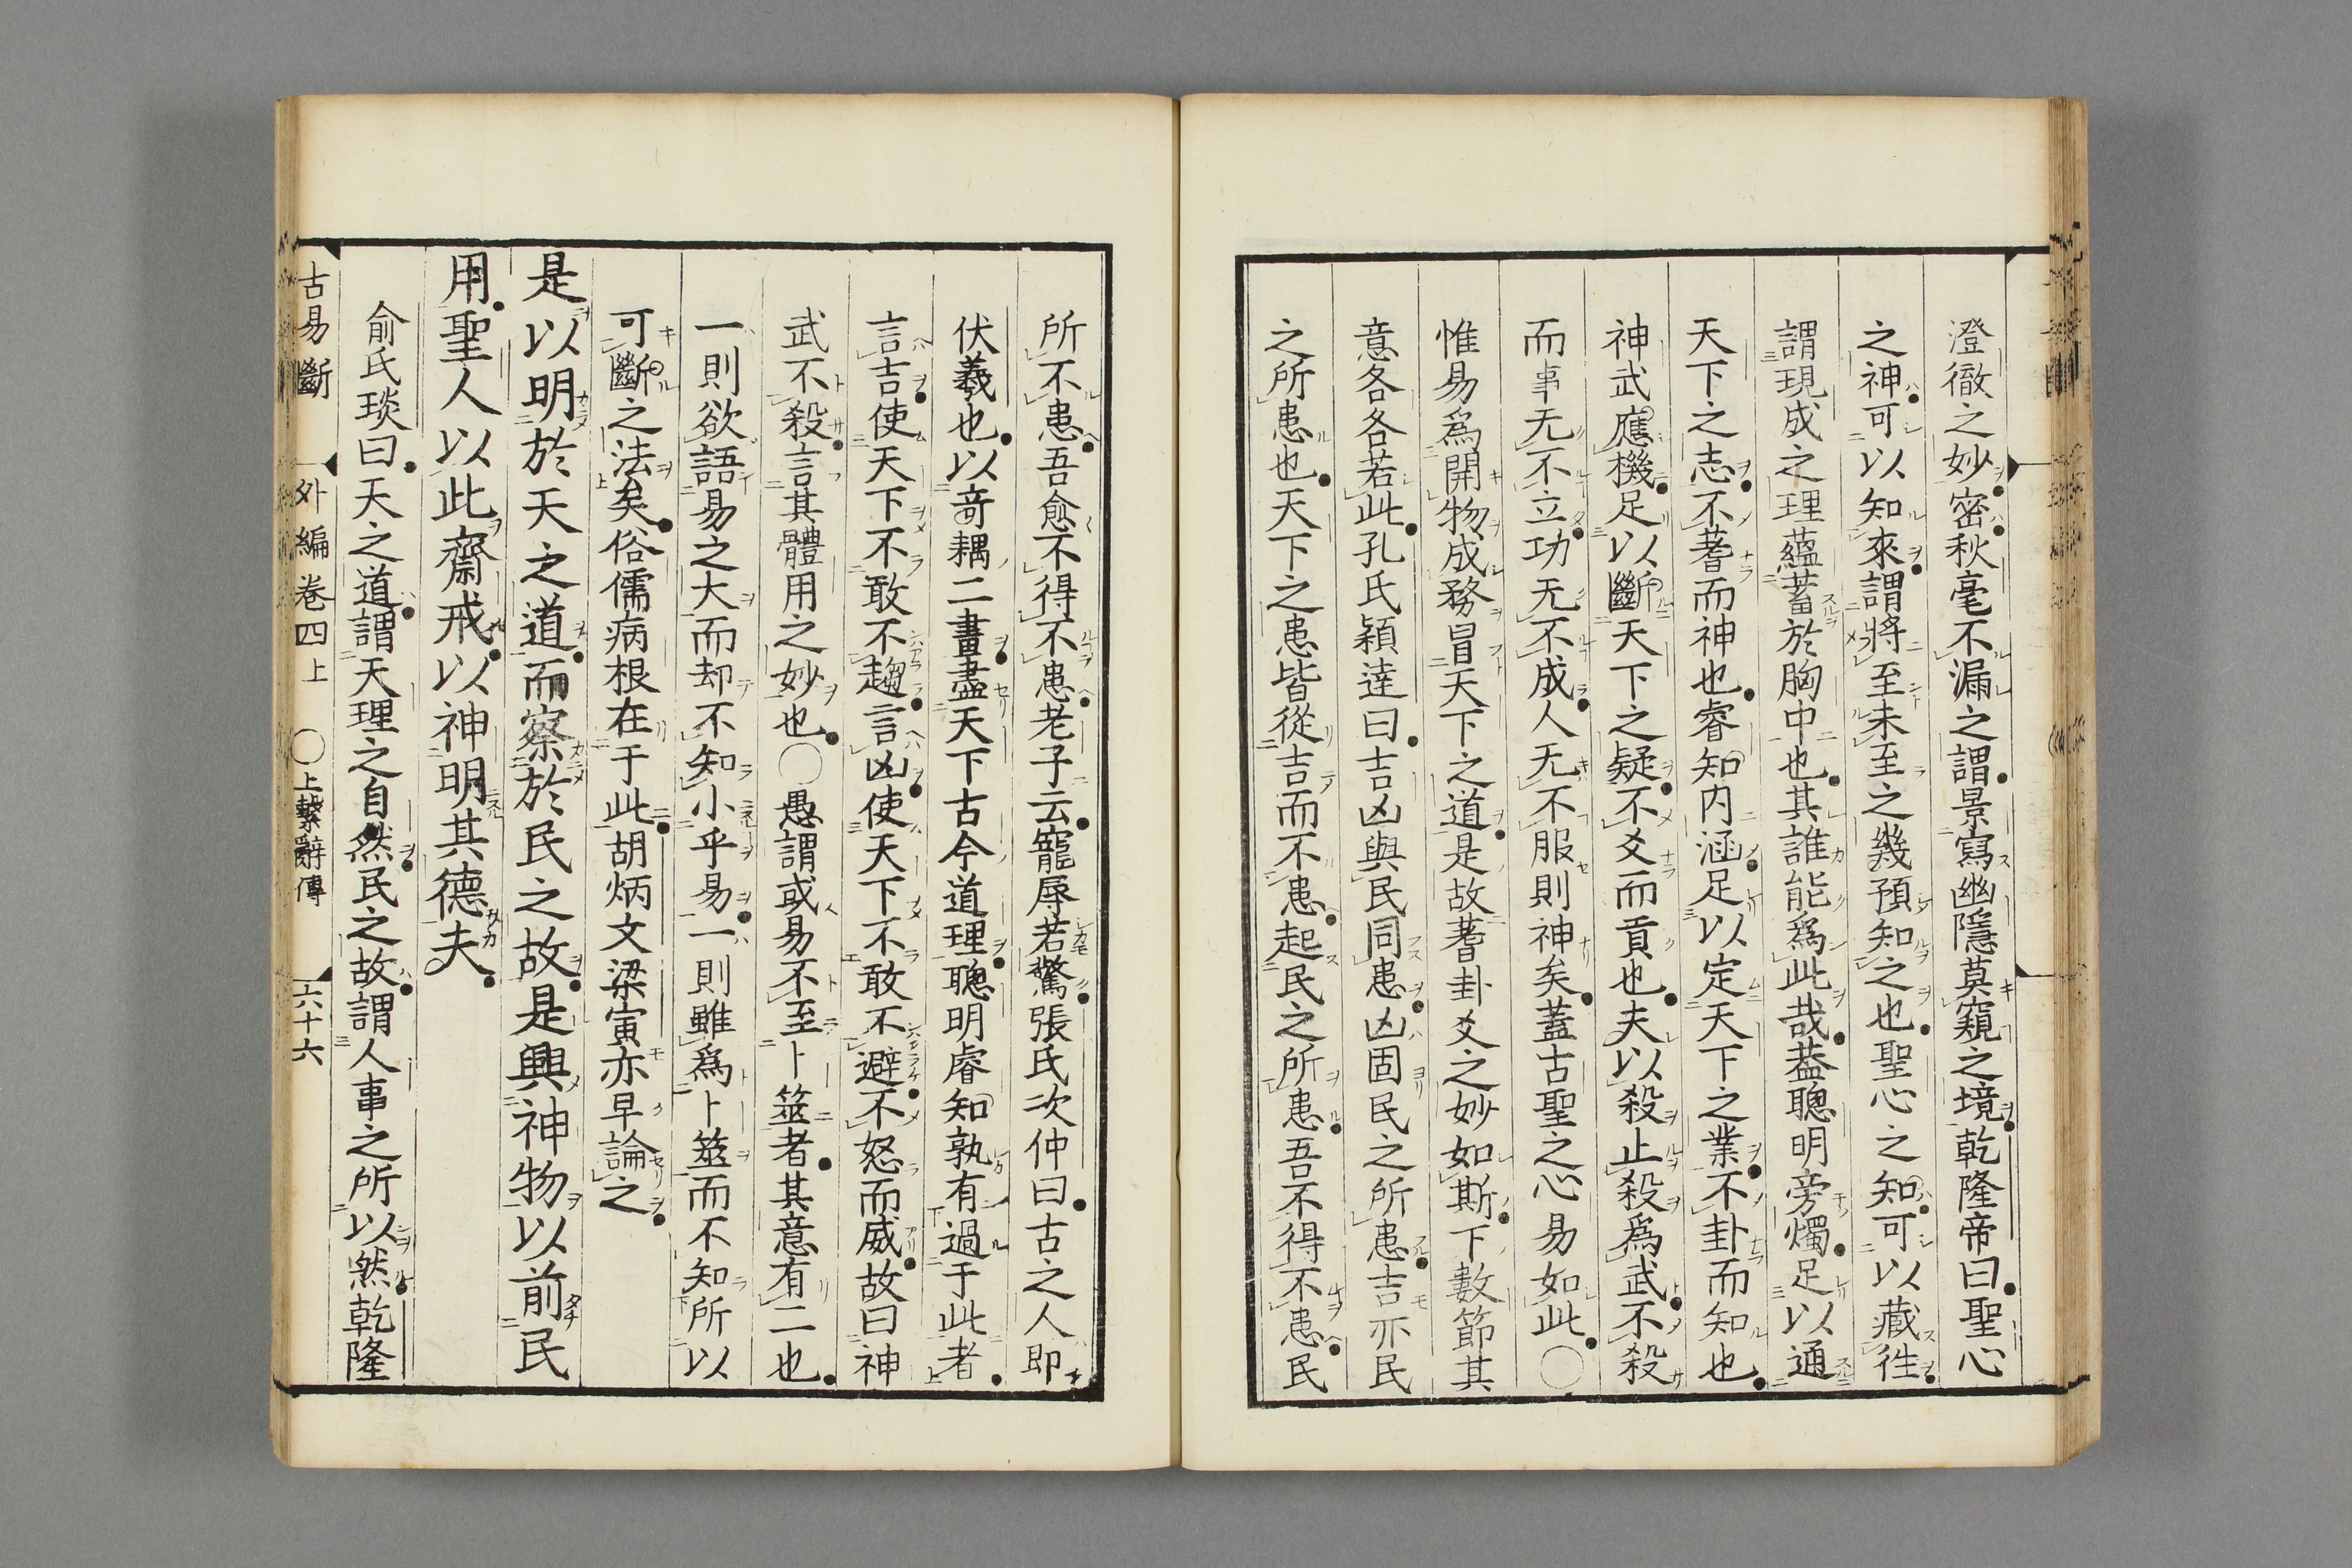 澄徹之妙密秋毫不漏之謂景寫幽隱莫窺之境乾隆帝曰聖心
之神可以知來謂將至未至之幾預知之也聖心之知可以藏徃
謂現成之理蘊蓄於胸中也其誰能爲此哉葢聰明旁燭足以通
天下之志不蓍而神也睿知内涵足以定天下之業不卦而知也
神武應機足以斷天下之疑不爻而貢也夫以殺止殺爲武不殺
而事无不立功无不成人无不服則神矣蓋古聖之心易如此〇
惟易爲開物成務冒天下之道是故蓍卦爻之妙如斯下數節其
意各各若此孔氏穎達曰吉凶與民同患凶固民之所患吉亦民
之所患也天下之患皆從吉而不患起民之所患吾不得不患民
所不患吾愈不得不患老子云寵辱若驚張氏次仲曰古之人即
伏羲也以竒耦二畫盡天下古今道理聰明睿知孰有過于此者
言吉使天下不敢不趨言凶使天下不敢不避不怒而威故曰神
武不殺言其體用之妙也〇愚謂或易不至卜筮者其意有二也
一則欲語易之大而却不知小乎易一則雖爲卜筮而不知所以
可斷之法矣俗儒病根在于此胡炳文梁寅亦早論之
是以明於天之道而察於民之故是興神物以前民
用聖人以此齋戒以神明其德夫
俞氏琰曰天之道謂天理之自然民之故謂人事之所以然乾隆
古易斷 外編卷四上 〇上繫辭傳 六十六